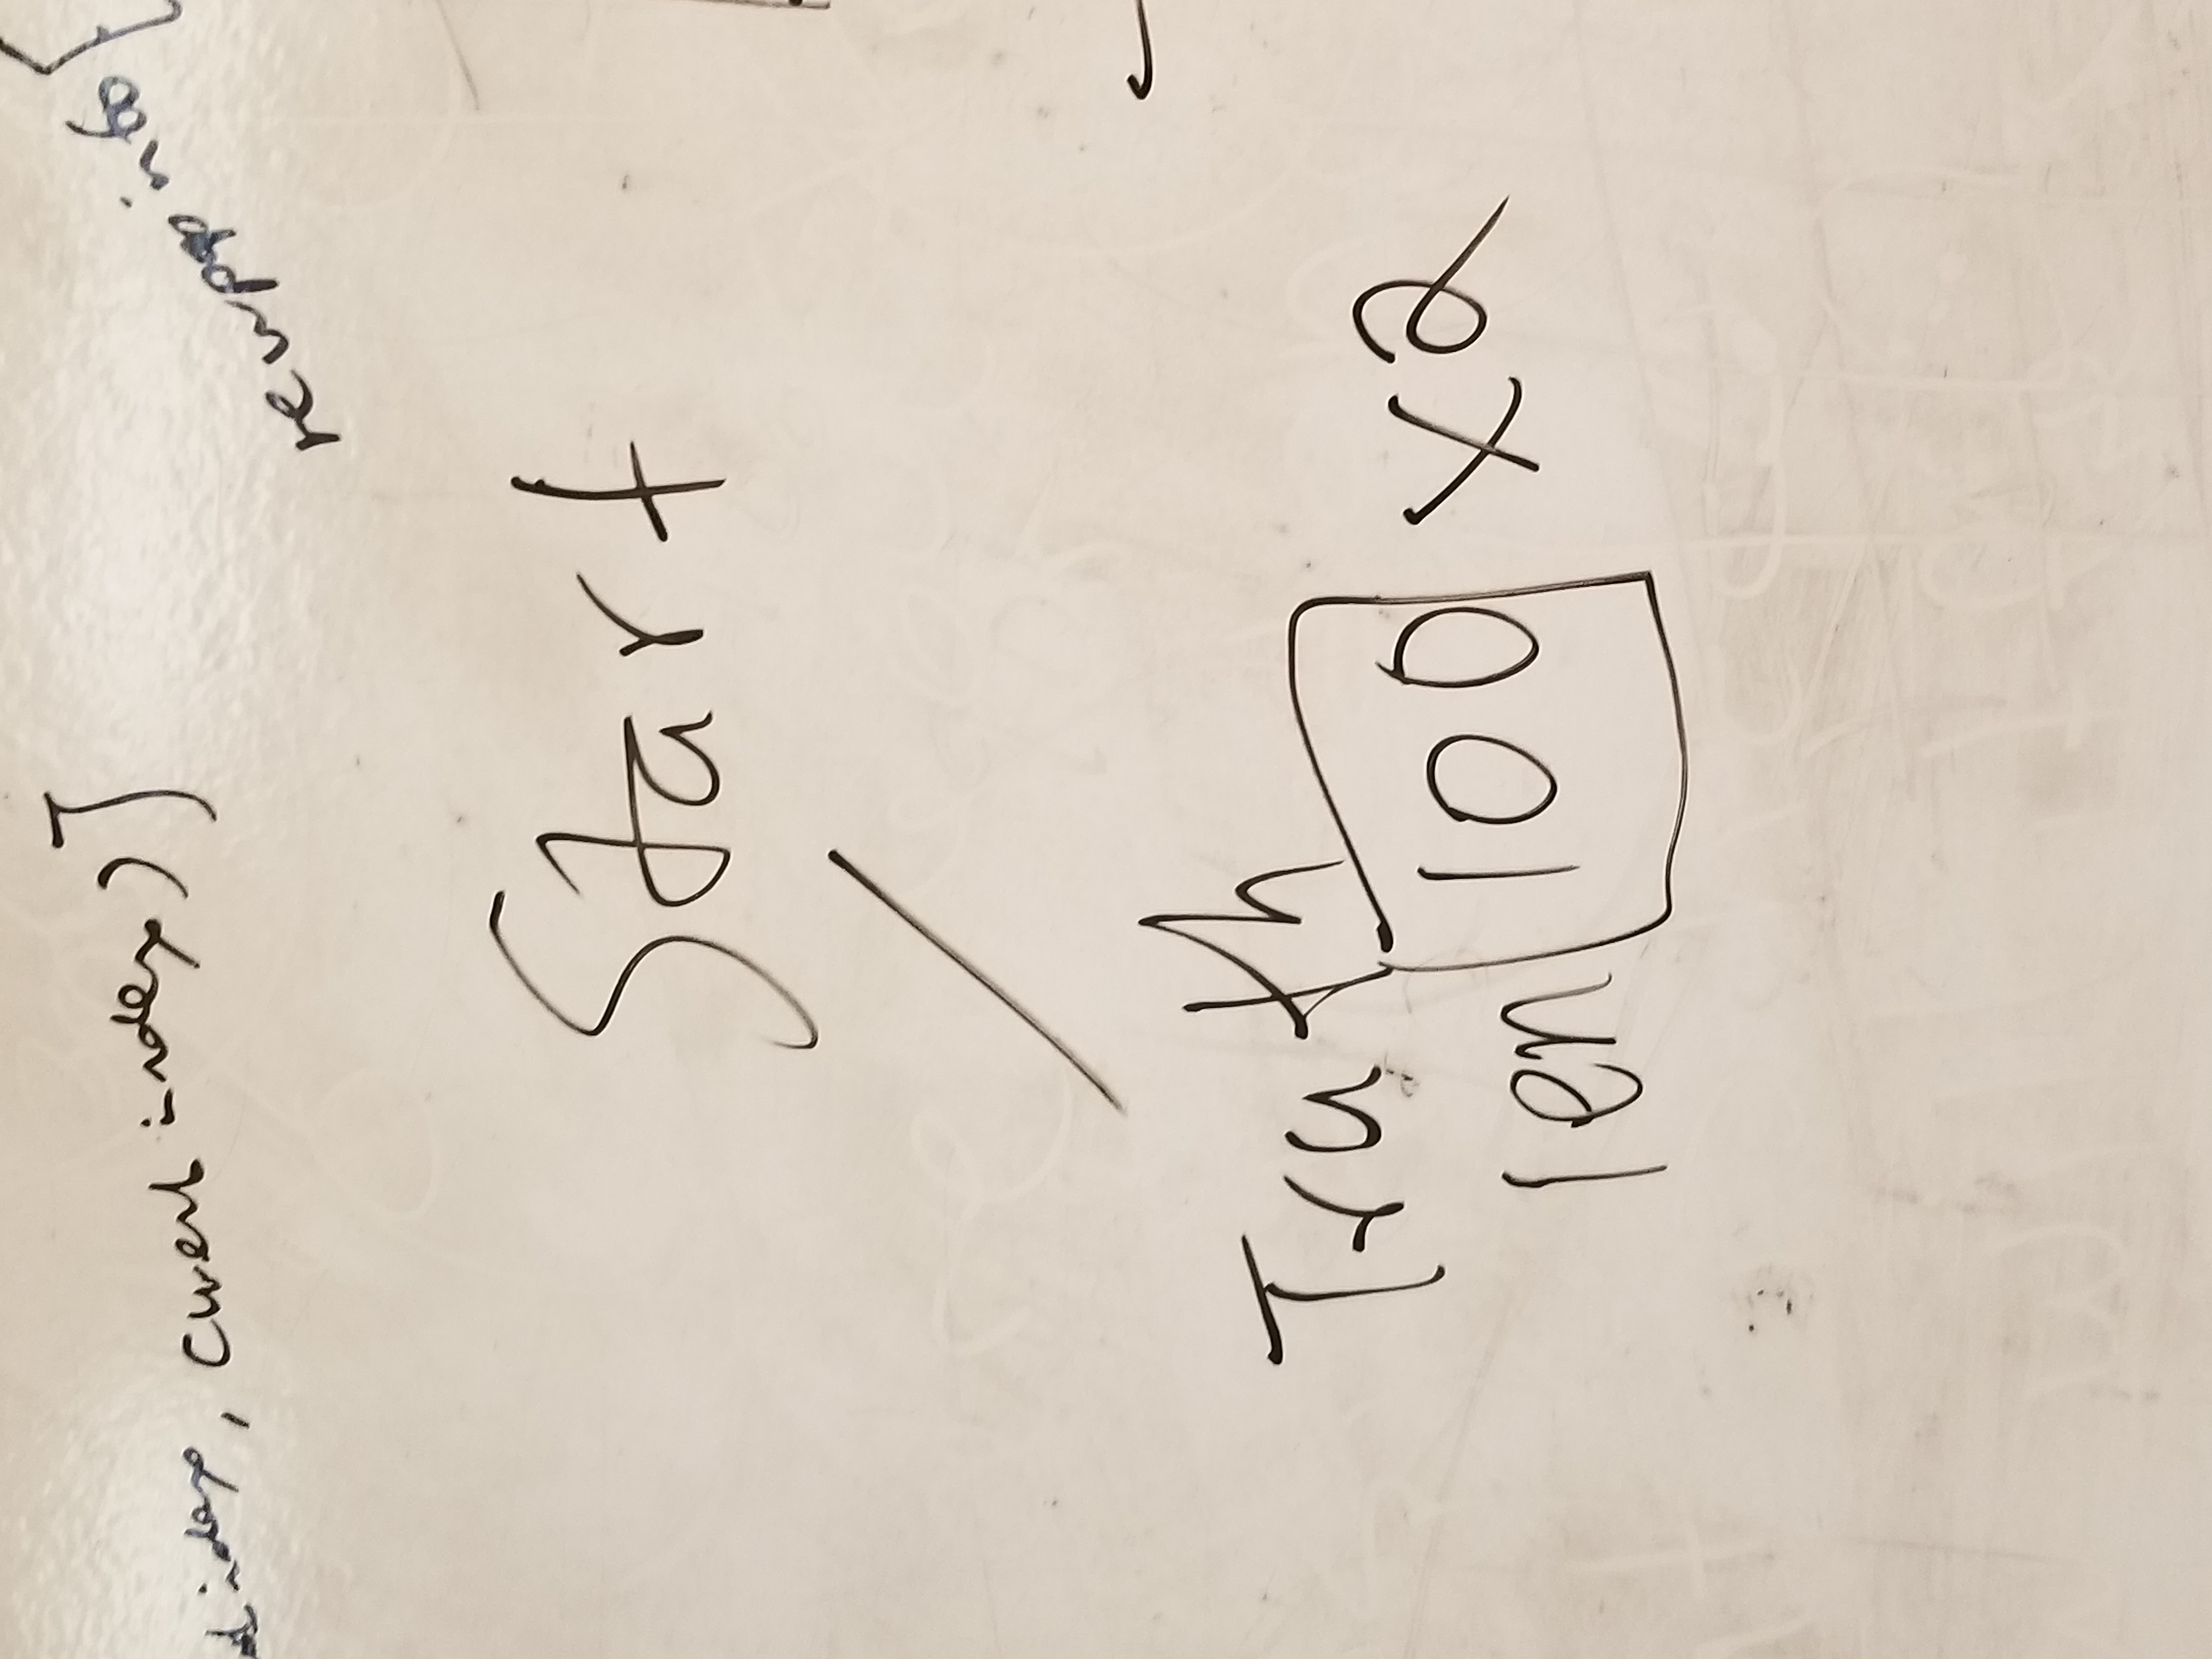 index, current index)]
into {
Start
Truth
len 100 x2